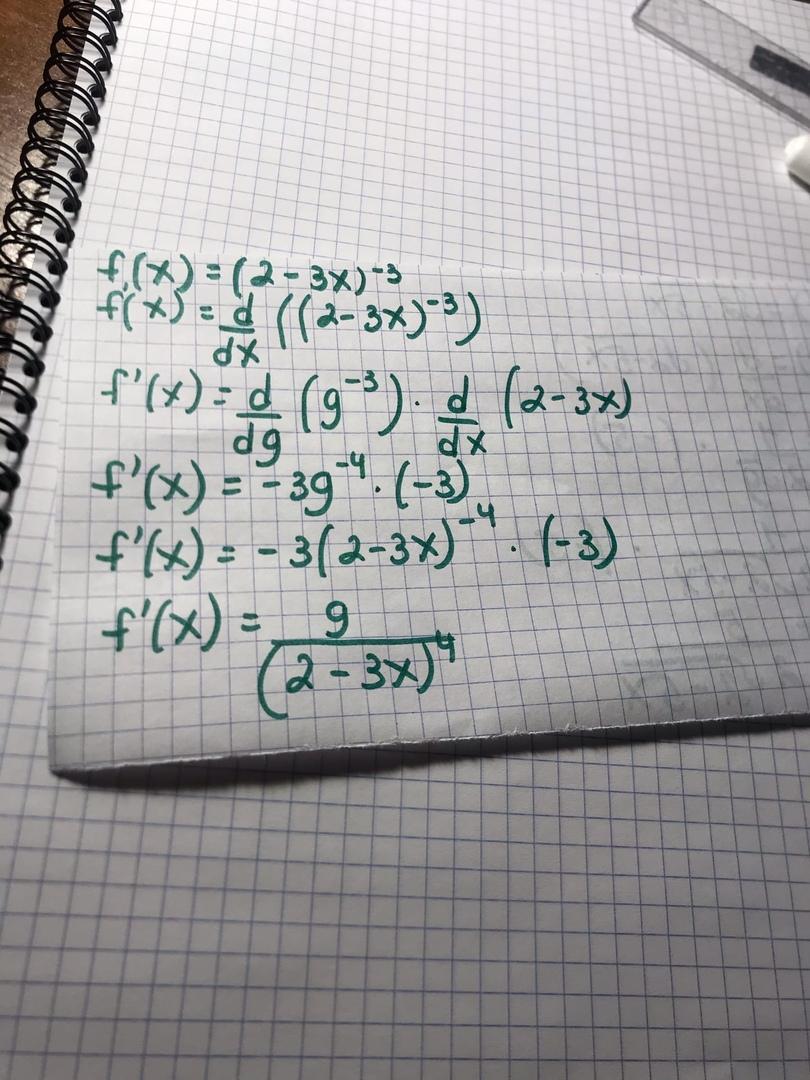 f(x) = (2 - 3x)^-3
f'(x) = d/dx ((2 - 3x)^-3)
f'(x) = d/dg (g^-3) · d/dx (2 - 3x)
f'(x) = -3g^-4 · (-3)
f'(x) = -3(2 - 3x)^-4 · (-3)
f'(x) = 9/(2 - 3x)^4